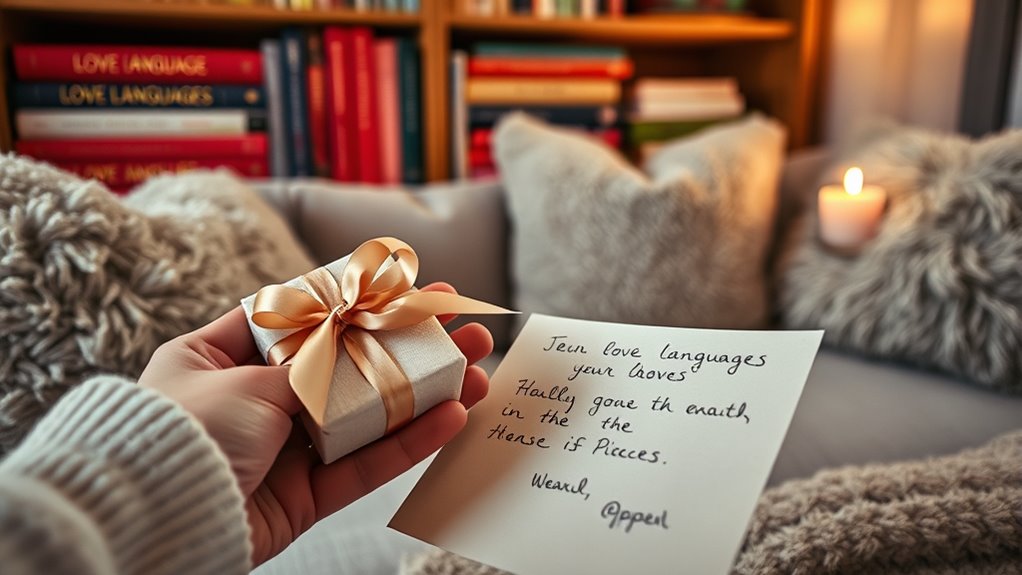 LOVE LANGUAGE
LOVE LANGUAGES
Jeur love languages
your Groves
Hallly goue th enaith,
in the the
Hense if Piccces.
Weard,
@ppeul